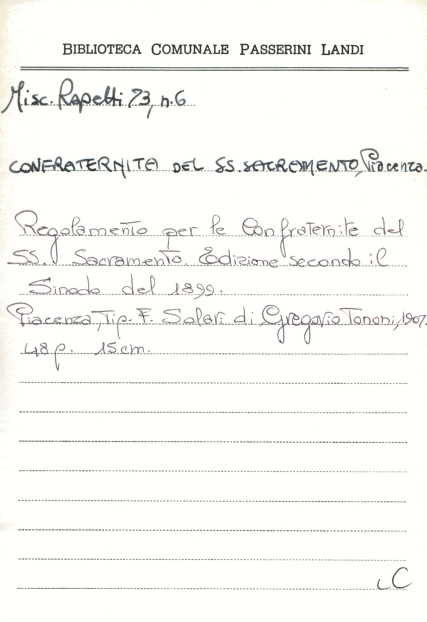 BIBLIOTECA COMUNALE PASSERINI LANDI
Misc. Rapetti 73, n.6
CONFRATERNITA DEL SS. SACRAMENTO, Piacenza.
Regolamento per le Confraternite del
SS. Sacramento. Edizione secondo il
Sinodo del 1899.
Piacenza, Tip. F. Solari di Gregorio Tononi, 1907.
48 p. 15 cm.